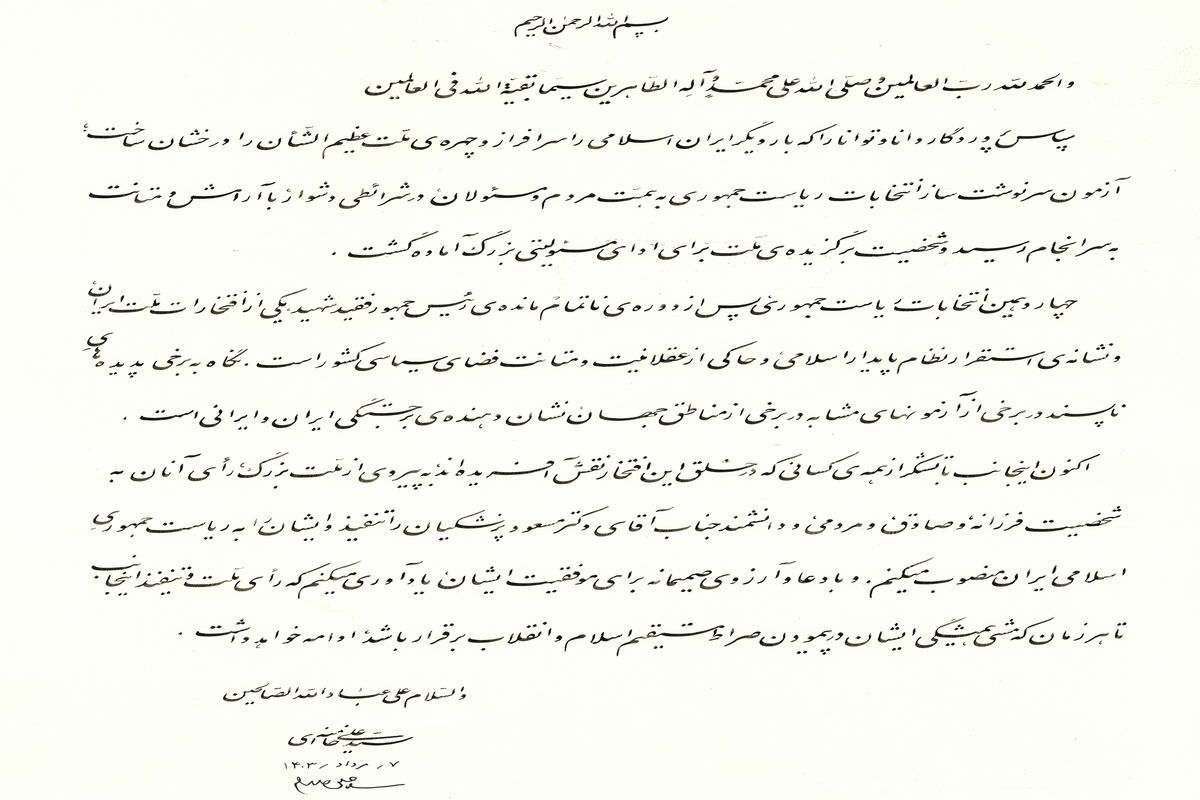 بسم الله الرحمن الرحیم
و الحمد لله رب العالمین و صلّی الله علی محمّد و آله الطّاهرین سیما بقیّة الله فی العالمین
سپاس پروردگار دانا و توانا را که بار دیگر ایران اسلامی را سرافراز و چهره‌ی ملّت عظیم الشّأن را درخشان ساخت،
آزمون سرنوشت ساز انتخابات ریاست جمهوری به همّت مردم و مسئولان در شرائطی دشوار با آرامش و متانت
به سرانجام رسید و شخصیت برگزیده‌ی ملّت برای ادای مسئولیتی بزرگ آماده گشت .
چهاردهمین انتخابات ریاست جمهوری پس از دوره‌ی ناتمام مانده‌ی رئیس جمهور فقید شهید، یکی از افتخارات ملّت ایران
و نشانه‌ی استقرار نظام پایدار اسلامی و حاکی از عقلانیت و متانت فضای سیاسی کشور است . نگاه به برخی پدیده‌های
ناپسند در برخی از آزمونهای مشابه در برخی از مناطق جهان نشان دهنده‌ی برجستگی ایران و ایرانی است .
اکنون اینجانب با تشکر از همه‌ی کسانی که در خلق این افتخار نقش آفریده‌اند به پیروی از ملّت بزرگ، رأی آنان به
شخصیت فرزانه و صادق و مردمی و دانشمند جناب آقای دکتر مسعود پزشکیان را تنفیذ و ایشان را به ریاست جمهوری
اسلامی ایران منصوب میکنم . و با دعا و آرزوی صمیمانه برای موفقیت ایشان یادآوری میکنم که رأی ملّت و تنفیذ اینجانب
تا هر زمان که مشی همیشگی ایشان در پیمودن صراط مستقیم اسلام و انقلاب برقرار باشد ادامه خواهد داشت .
والسّلام علی عباد الله الصّالحین
سیّد علی خامنه‌ای
۷ ر مرداد ر ۱۴۰۳